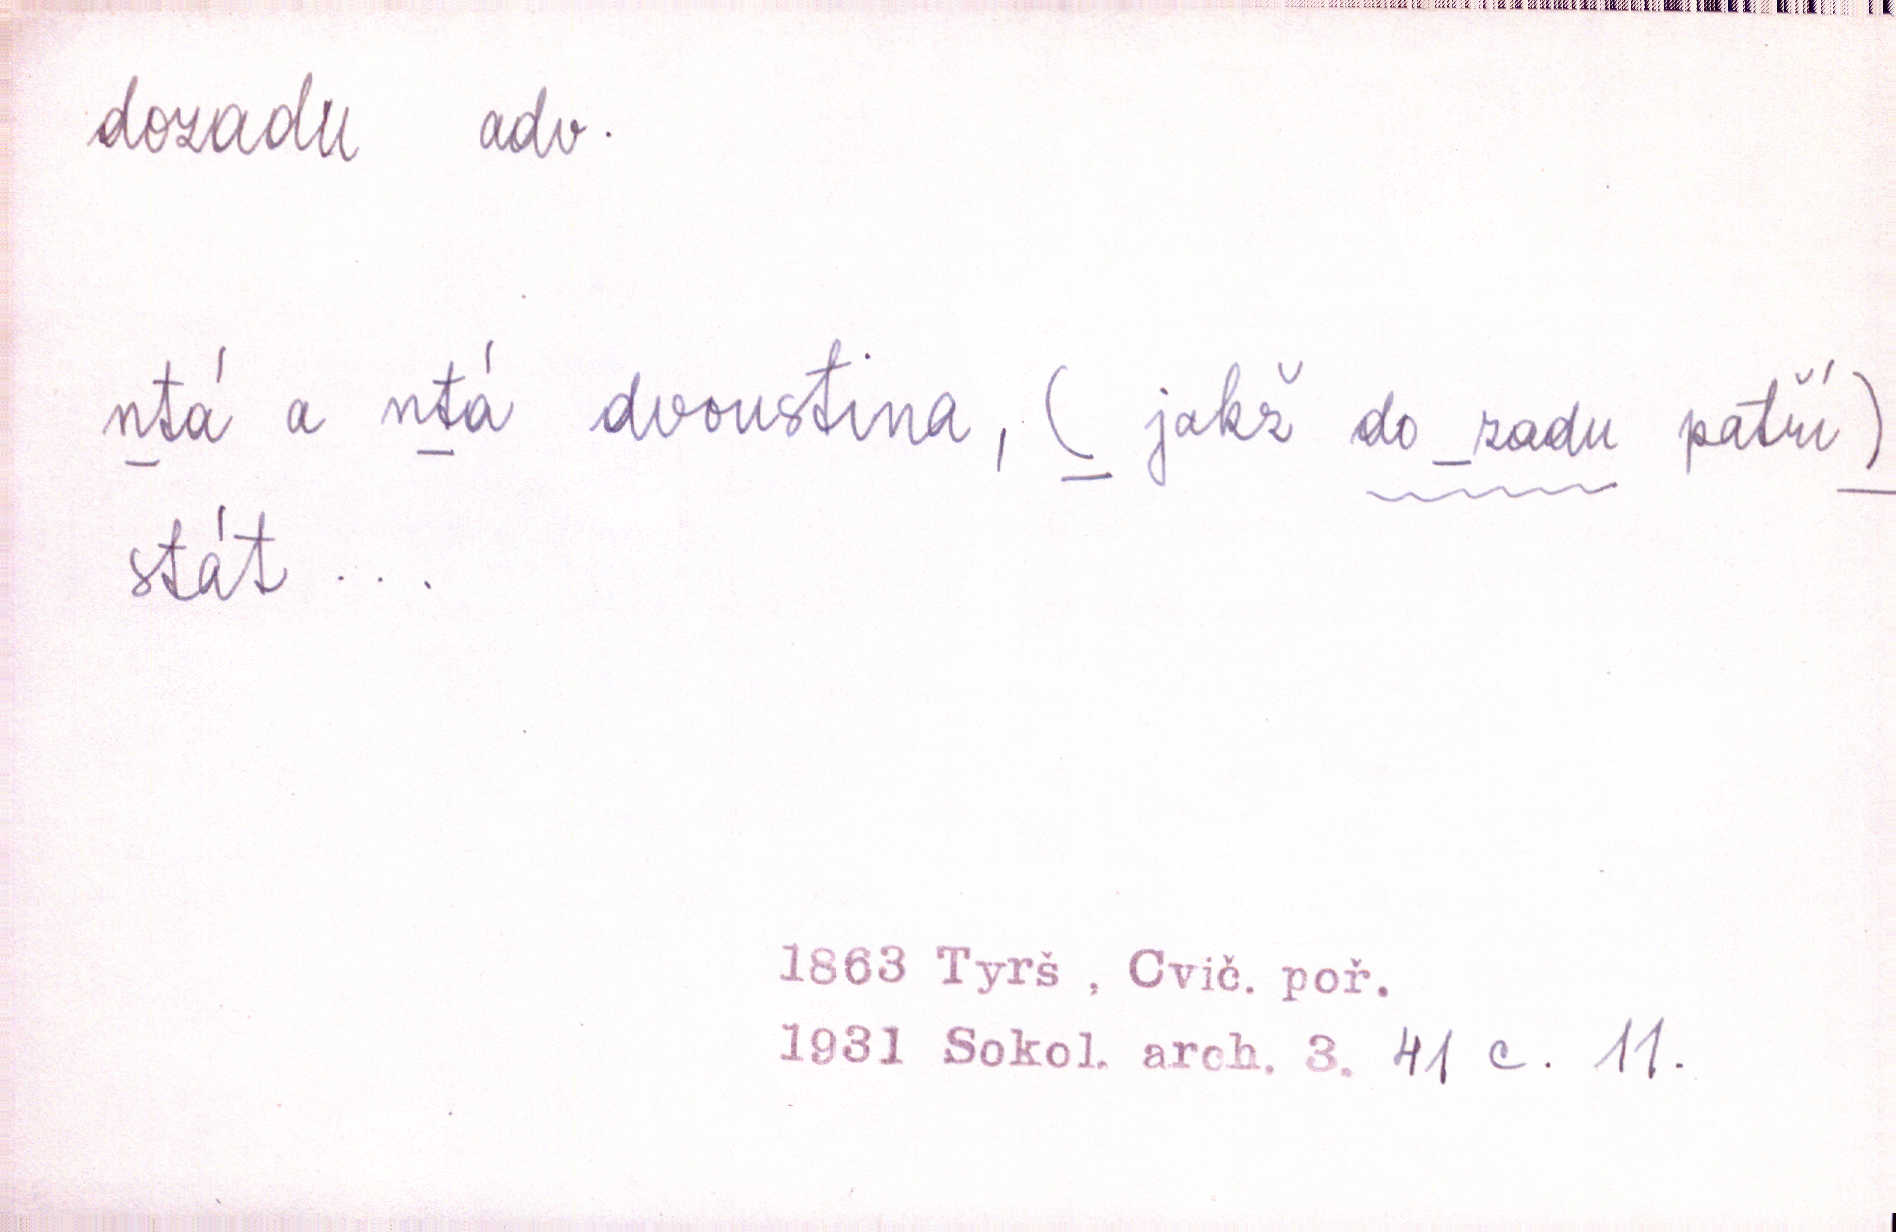 dozadu adv.
ntá a ntá dvoustina, ( jakž do zadu patří )
stát ...
1863 Tyrš , Cvič. poř.
1931 Sokol. arch. 3. 41 c. 11.